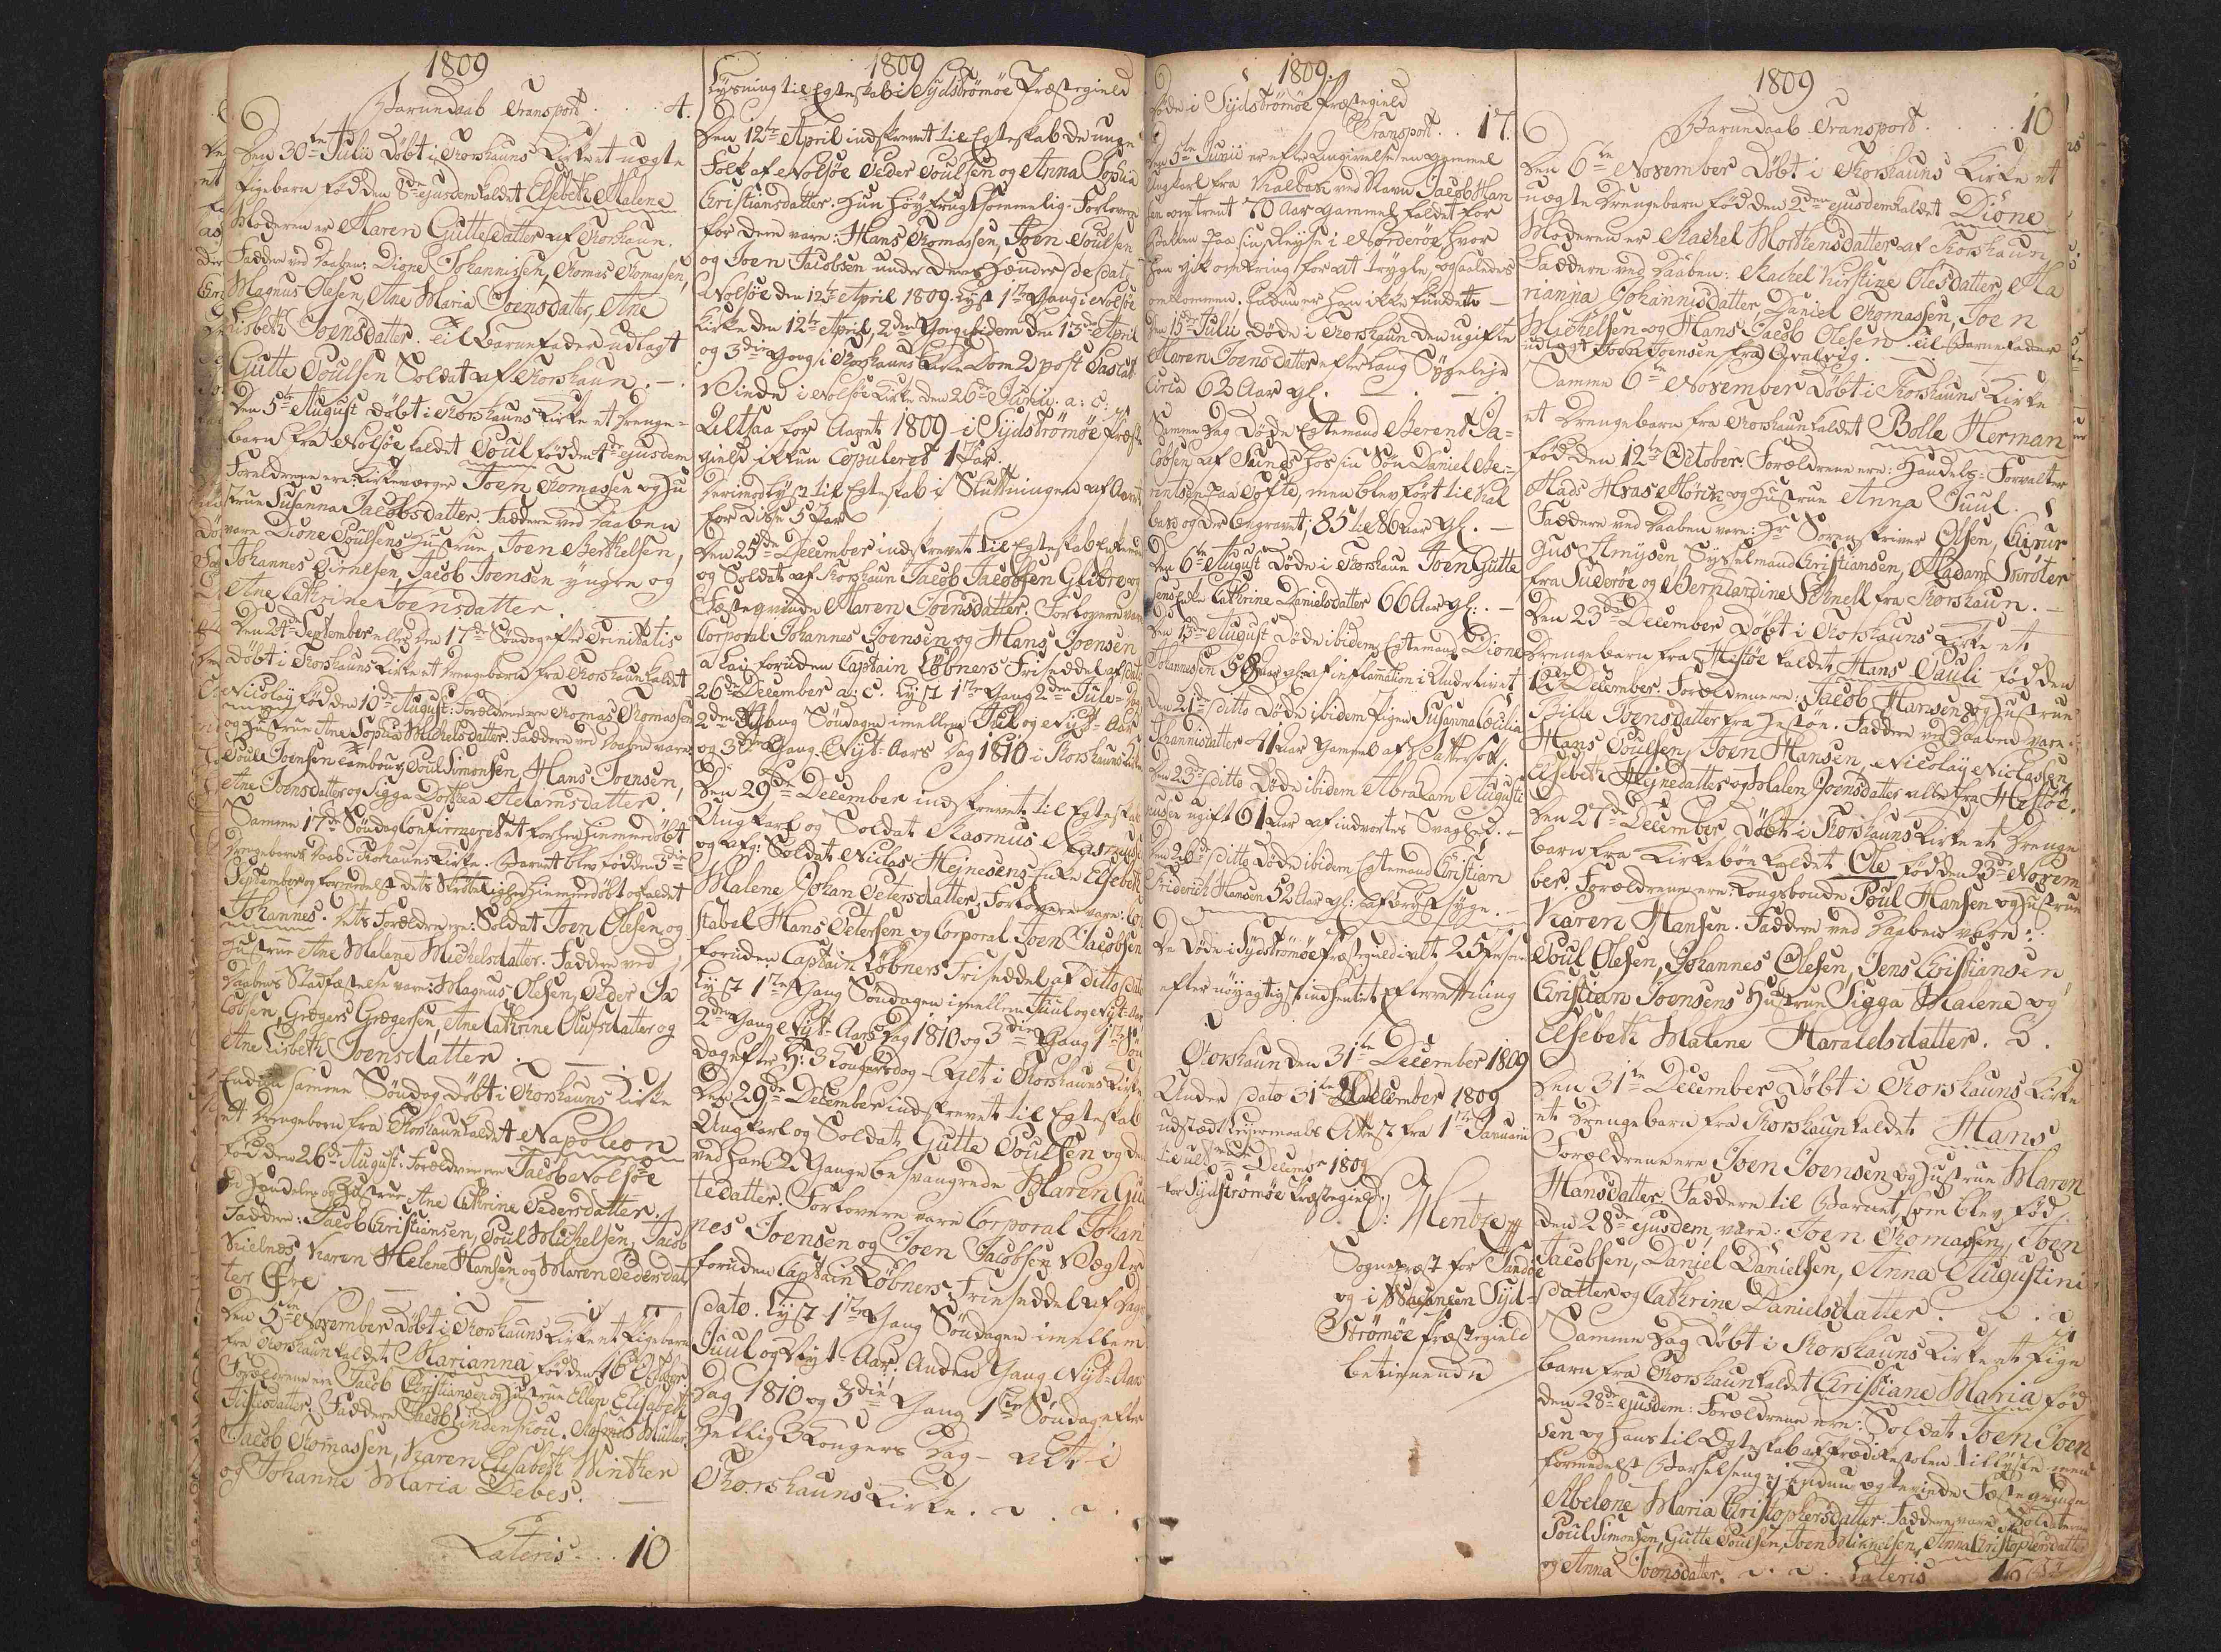 1809
Barnedaab Transport . . . . 4.
Den 30te Julii Døbt i Thorshauns Kirke et uægte
Pigebarn fød den 8de ejusdem kaldet Elsebeth Malene
Moderen er Maren Guttesdatter af Thorshaun.
Faddere ved Daaben: Dione Johannissen, Thomas Thomassen,
Magnus Olesen, Ane Maria Joensdatter, Ane
Lisbeth Joensdatter. Til Barnefader udlagt
Gutte Poulsen Soldat af Thorshaun. —
Den 5te August Døbt i Thorshauns Kirke et Drenge-
barn fra Nolsøe kaldet Poul fød den 4de ejusdem
Foreldrene ere Kirkeværger Joen Thomassen og Hu
strue Susanna Jacobsdatter. Faddere ved Daaben
vare Dione Poulsens Hustrue, Joen Berthelsen,
Johannes Eirnesen, Jacob Joensen yngre og
Ane Cathrine Joensdatter.
Den 24de September eller den 17de Søndag efter Trinitatis
døbt i Thorshauns Kirke et Drengebarn fra Thorshaun kaldet
Nicolay fød den 10de August: Forældrene ere Thomas Thomassen
og Hustrue Ane Sophia Michelsdatter. Faddere ved Daaben vare
Poul Joensen Tambour, Poul Simonsen, Hans Joensen,
Ane Joensdatter og Sigga Dorthea Adamsdatter.
Samme 17de Søndag Confirmeret et forhen hiemmedøbt
Drengebarns Daab i Thorshauns Kirke. Barnet blev fød den 3die
September og formedelst dets Skrøbelighed hiemmedøbt og kaldet
Johannes. Dets Forældre ere: Soldat Joen Olesen og
Hustrue Ane Malene Michelsdatter. Faddere ved
Daabens Stadfæstelse vare: Magnus Olesen, Peder Ja
cobsen, Grægers Grægersen, Ane Cathrine Olufsdatter og
Ane Lisbeth Joensdatter. —
Endnu samme Søndag døbt i Thorshauns Kirke
et Drengebarn fra Thorshaun kaldet Napoleon
fød den 26de August: Forældrene ere Jacob Nolsøe
ved Handelen og Hustrue Ane Cathrine Pedersdatter.
Faddere: Jacob Christiansen, Poul Michelsen, Jacob
Kielnæs, Karen Helene Hansen og Maren Pedersdat
ter Øre
Den 5te November Døbt i Thorshauns Kirke et Pigebarn
fra Thorshaun kaldet Marianna fød den 16de October
Forældrene ere Jacob Christiansen og Hustrue Ellen Elisabeth
Faddere Jacob Lindenskou, Rasmus Müller,
Jacob Thomassen, Karen Elisabeth Winther
og Johanne Maria Debes. —
Lateris . . . 10
1809
Lysning til Egteskab i Sydstrømøe Præstegield
Den 12te April indskrevet til Egteskab de unge
Folk af Nolsøe Peder Poulsen og Anna Sophia
Christiansdatter. Hun høyfrugtsommelig. Forlovere
for dem vare: Hans Thomassen, Joen Poulsen
og Joen Jacobsen under deres Hænder de dato
Nolsøe den 12te April 1809. Lyst 1te Gang i Nolsøe
Kirke den 12te April, 2den Gang ibidem den 13de April
og 3die Gang i Thorshauns Kirke Dom 2 post Pascat
Viede i Nolsøe Kirke den 26de Junii a: c:
Altsaa for Aaret 1809 i Sydstrømøe Præste
gield ikkun Copuleret 1 Par.
Derimod lyst til Egteskab i Slutningen af Aaret
for disse 3 Par
Den 25de December indskrevet til Egteskab Enkemand
og Soldat af Thorshaun Jacob Jacobsen Glibre og
Fæsteqvinde Maren Joensdatter. Forlovere vare
Corporal Johannes Joensen og Hans Joensen
a Lag foruden Captain Løbners Friseddel af dato
26de December a: c. Lyst 1te Gang 2den Jule-Dag
2den Gang Søndagen imellem Jul og Nyt-Aar
og 3die Gang Nyt-Aars Dag 1810 i Thorshauns Kirke
Den 29de December indskrevet til Egteskab
Ungkarl og Soldat Rasmus Rasmussen
og afg: Soldat Niclas Hejnesens Enke Elsebeth
Malene Johan Petersdatter, Forlovere vare: Con
stabel Hans Petersen og Corporal Joen Jacobsen
foruden Captain Løbners Friseddel af ditto dato
Lyst 1te Gang Søndagen imellem Juul og Nyt-Aar
2den Gang Nyt-Aars Dag 1810 og 3die Gang 1te Søn
dag efter H: 3 Kongersdag — Alt i Thorshauns Kirke
Den 29de December indskrevet til Egteskab
Ungkarl og Soldat Gutte Poulsen og den
ved ham 2 Gange besvangrede Maren Gut
tesdatter. Forlovere vare Corporal Johan
nes Joensen og Joen Jacobsen Vægter
foruden Captain Løbners Frieseddel af Dags
dato. Lyst 1te Gang Søndagen imellem
Juul og Nyt-Aar, Anden Gang Nyt-Aars
Dag 1810 og 3die Gang 1te Søndag efter
Hellig 3 Kongers Dag — alt i
Thorshauns Kirke.
1809.
Døde i Sydstrømøe Præstegield
Transport . . 17.
Den 5te Junii er efter Angivelse en gammel
Ungkarl fra Kalbak ved Navn Jacob Han
sen omtrent 70 Aar gammel faldet for
Bakken paa sin Reyse i Norderøe, hvor
han gik omkring for at trygle, og saaledes
omkommen. Endnu er han ikke funden —
Den 15de Julii døde i Thorshaun den ugifte
Maren Joensdatter efter lang Sygeleje
Circa 62 Aar gl.
Samme Dag døde Egtemand Berend Ja-
cobsen af Sund hos sin Søn Daniel Be-
rentsen paa Tofte, men blev ført til Kal
bak og der begravet; 85 til 86 Aar gl. —
Den 6te August Døde i Thorshaun Joen Gutte
sens Enke Cathrine Danielsdatter 66 Aar gl:. —
Den 13de August Døde ibidem Egtemand Dione
Johannesen 58 Aar gl: af inflammation i Underlivet
Den 21de ditto Døde ibidem Pigen Susanna Cæcilia
Johannisdatter 41 Aar gammel af
Den 23de ditto Døde ibidem Abraham Augusti
nusen ugift 61 Aar af indvortes Svaghed. —
Den 26de ditto Døde ibidem Egtemand Christian
Friderich Hansen 52 Aar gl: af Brystsyge. —
De Døde i Sydstrømøe Præstegield i alt 25 Personer
efter nøyagtigst indhentet Efterretning
Thorshaun den 31te December 1809
Under Dato 31te December 1809
udstædt Attest fra 1te Januarii
til ult December 1809
for Sydstrømøe Præstegield.
P: Mentze
Sognepræst for Sandøe
og i Vacancen Syd-
Strømøe Præstegield
betienende
1809
Barnedaab Transport . . . . . 10
Den 6te November Døbt i Thorshauns Kirke et
uægte Drengebarn fød den 2den ejusdem kaldet Dione
Moderen er Rachel Morthensdatter af Thorshaun
Faddere ved Daaben: Rachel Kirstine Olesdatter, Ma
rianna Johannisdatter, Daniel Thomassen, Joen
Michelsen og Hans Jacob Olesen. Til Barnefader
udlagt Joen Joensen fra Qvalvig. —
Samme 6te November Døbt i Thorshauns Kirke
et Drengebarn fra Thorshaun kaldet Bolle Herman
fød den 12te October. Forældrene ere: Handels-Forvalter
Mads Hvas Mørck og Hustrue Anna Juul.
Faddere ved Daaben vare: Hr Sorenskriver Olsen, Chirur
gus Amysen, Sysselmand Christiansen, Madam Schrøter
fra Suderøe og Bernhardine Schnell fra Thorshaun. —
Den 23de December Døbt i Thorshauns Kirke et
Drengebarn fra Hestøe kaldet Hans Pauli fød den
12te December. Forældrene ere: Jacob Hansen og Hustrue
Bille Joensdatter fra Hestøe. Faddere ved Daaben vare:
Hans Poulsen, Joen Hansen, Nicolay Niclassen,
Elsebeth Hejnesdatter og Malen Joensdatter alle fra Hestøe.
Den 27de December Døbt i Thorshauns Kirke et Drenge
barn fra Kirkebøe kaldet Ole fød den 23de Novem
ber. Forældrene ere: Kongsbonde Poul Hansen og Hustrue
Karen Hansen. Faddere ved Daaben vare:
Poul Olesen, Johannes Olesen, Jens Christiansen
Christian Joensens Hustrue Sigga Malene og
Elsebeth Malene Haraldsdatter.
Den 31te December Døbt i Thorshauns Kirke
et Drengebarn fra Thorshaun kaldet Hans
Forældrene ere Joen Joensen og Hustrue Maren
Hansdatter. Faddere til Barnet, som blev fød
den 28de ejusdem, vare: Joen Thomassen, Joen
Jacobsen, Daniel Danielsen, Anna Augustini
datter og Cathrine Danielsdatter.
Samme Dag Døbt i Thorshauns Kirke et Pige
barn fra Thorshaun kaldet Christiane Maria fød
den 28de ejusdem: Forældrene ere: Soldat Joen Joen
sen og hans til Egteskab af Prædikestolen tillyste men
formedelst Barselseng ej endnu egteviede Fæsteqvinde
Abelone Maria Christophersdatter. Faddere vare Soldaterne
Poul Simonsen, Gutte Poulsen, Joen Mikkelsen, Anna Christophersdatter
og Anna Joensdatter. Lateris 16